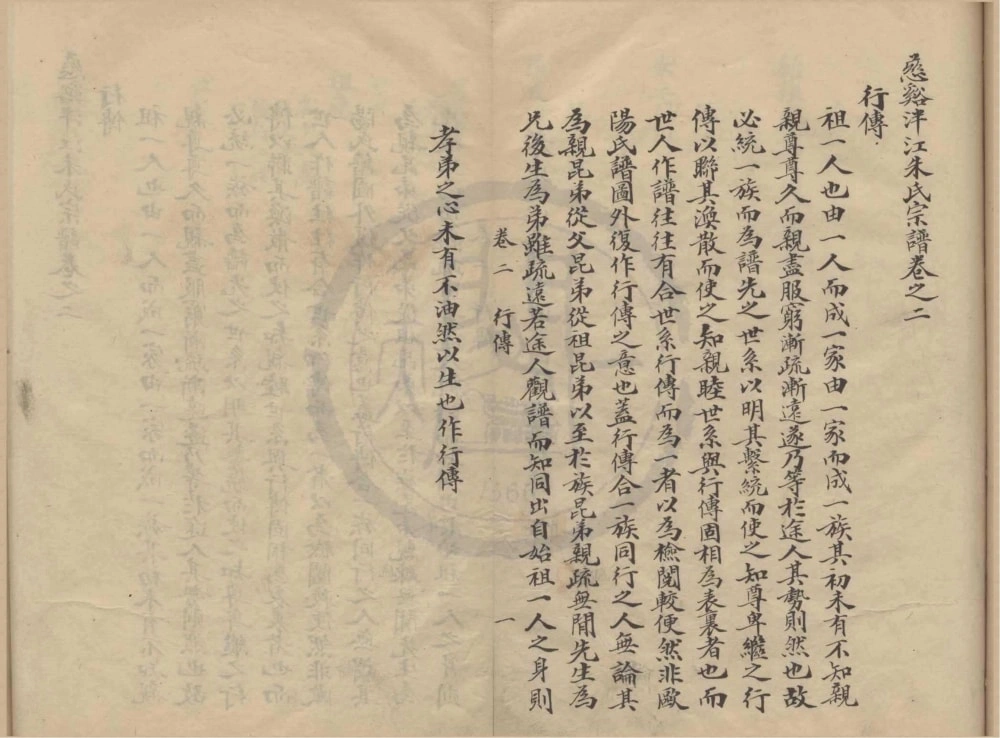 慈谿渟江朱氏宗譜卷之二
行傳
祖一人也由一人而成一家由一家而成一族其初未有不知親
親尊尊久而親盡服窮漸疏漸遠遂乃等於途人其勢則然也故
必統一族而為譜先之世系以明其繫統而使之知尊卑繼之行
傳以聯其渙散而使之知親睦世系與行傳固相為表裏者也而
世人作譜往往有合世系行傳而為一者以為檢閱較便然非歐
陽氏譜圖外復作行傳之意也蓋行傳合一族同行之人無論其
為親昆弟從父昆弟從祖昆弟以至於族昆弟親疏無間先生為
兄後生為弟雖疏遠若途人觀譜而知同出自始祖一人之身則
卷二 行傳 一
孝弟之心未有不油然以生也作行傳